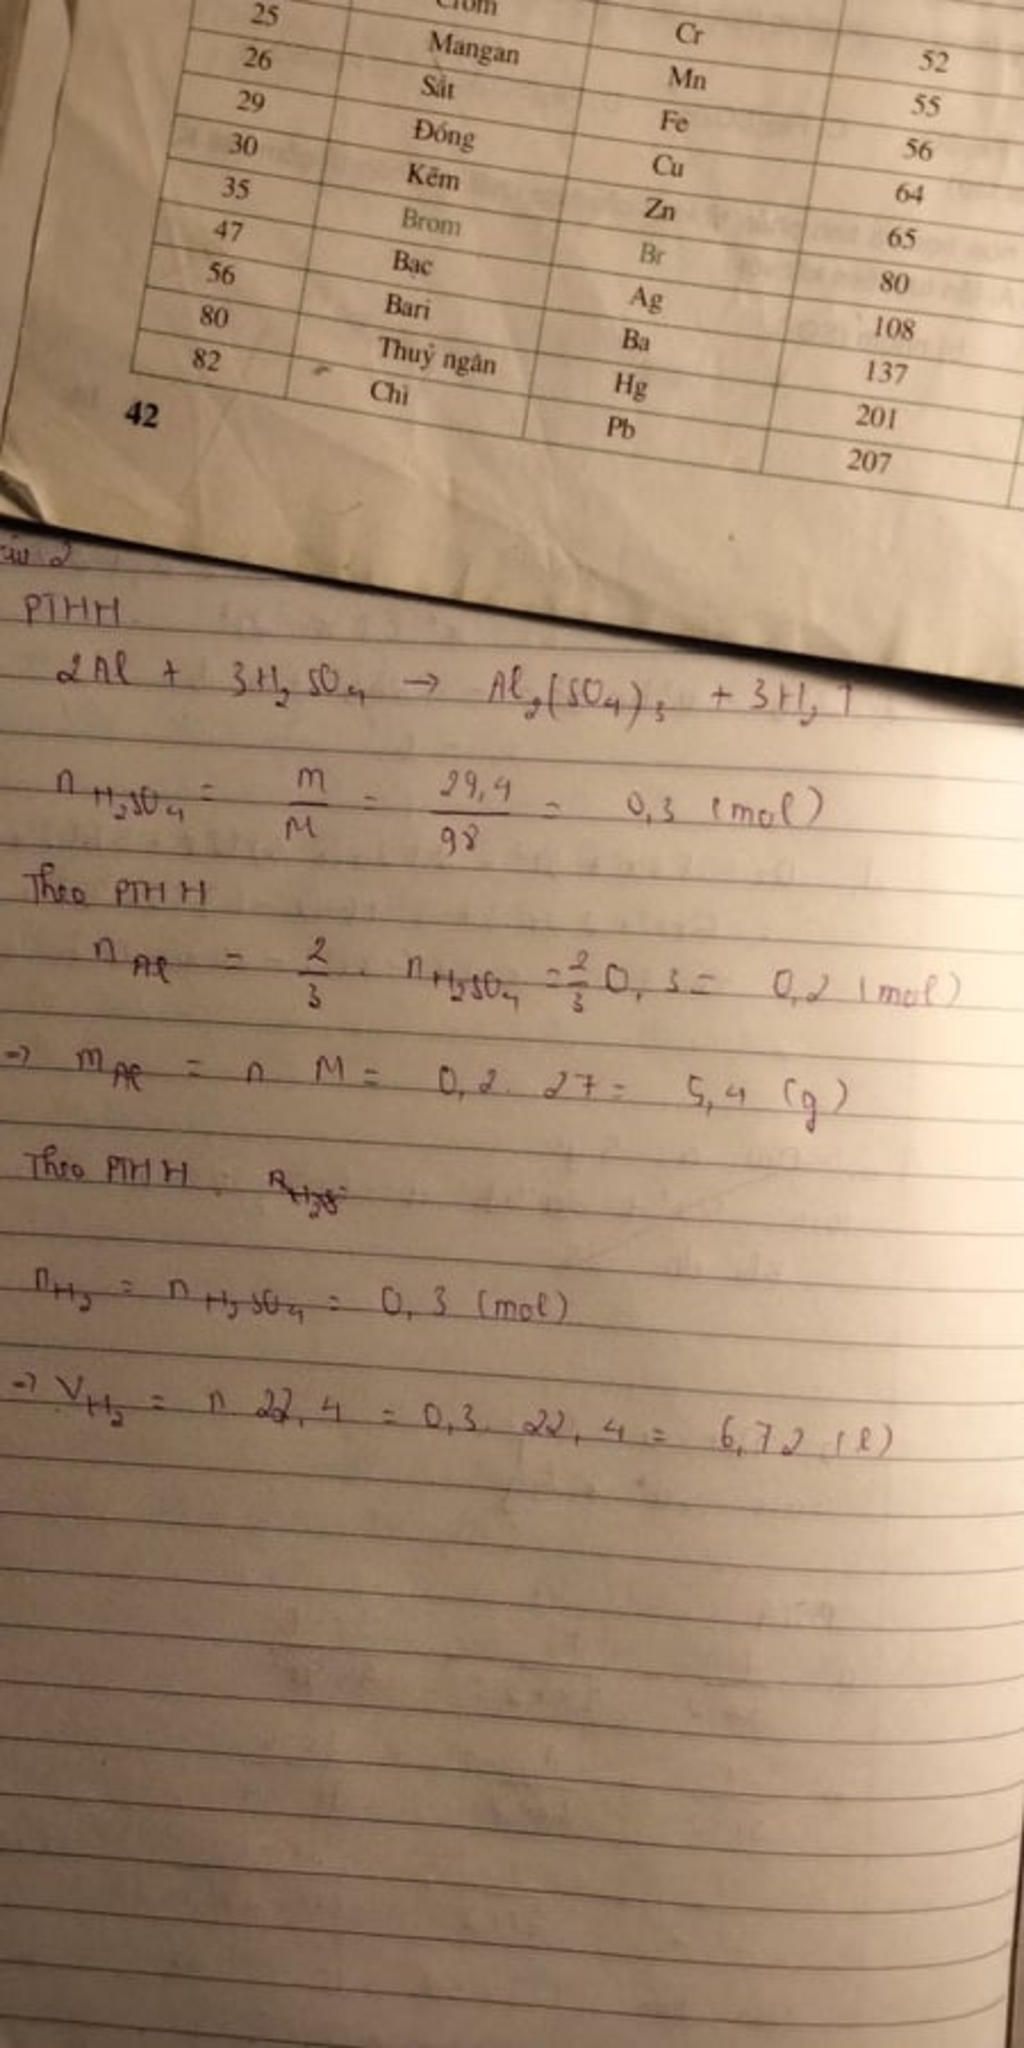 Crom Cr 52
25 Mangan Mn 55
26 Sắt Fe 56
29 Đồng Cu 64
30 Kẽm Zn 65
35 Brom Br 80
47 Bạc Ag 108
56 Bari Ba 137
80 Thuỷ ngân Hg 201
82 Chì Pb 207
42
2
PTHH
2Al + 3H₂SO₄ → Al₂(SO₄)₃ + 3H₂↑
n H₂SO₄ = m/M = 29,4/98 = 0,3 (mol)
Theo PTHH
n Al = 2/3 . n H₂SO₄ = 2/3 0,3 = 0,2 (mol)
=> m Al = n M = 0,2 . 27 = 5,4 (g)
Theo PTHH :
n H₂ = n H₂SO₄ = 0,3 (mol)
=> V H₂ = n 22,4 = 0,3 . 22,4 = 6,72 (l)